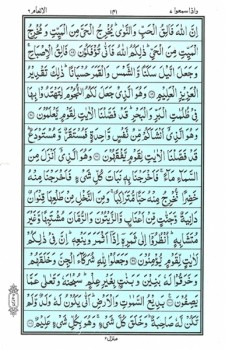 واذا سمعوا ٧ ١٤١ الانعام ٦
اِنَّ اللّٰهَ فَالِقُ الْحَبِّ وَالنَّوٰى يُخْرِجُ الْحَىَّ مِنَ الْمَيِّتِ وَمُخْرِجُ
الْمَيِّتِ مِنَ الْحَىِّ ذٰلِكُمُ اللّٰهُ فَاَنّٰى تُؤْفَكُوْنَ ۝ فَالِقُ الْاِصْبَاحِ
وَجَعَلَ الَّيْلَ سَكَنًا وَّالشَّمْسَ وَالْقَمَرَ حُسْبَانًا ذٰلِكَ تَقْدِيْرُ
الْعَزِيْزِ الْعَلِيْمِ ۝ وَهُوَ الَّذِىْ جَعَلَ لَكُمُ النُّجُوْمَ لِتَهْتَدُوْا بِهَا
فِىْ ظُلُمٰتِ الْبَرِّ وَالْبَحْرِ قَدْ فَصَّلْنَا الْاٰيٰتِ لِقَوْمٍ يَّعْلَمُوْنَ ۝
وَهُوَ الَّذِىْۤ اَنْشَاَكُمْ مِّنْ نَّفْسٍ وَّاحِدَةٍ فَمُسْتَقَرٌّ وَّمُسْتَوْدَعٌ
قَدْ فَصَّلْنَا الْاٰيٰتِ لِقَوْمٍ يَّفْقَهُوْنَ ۝ وَهُوَ الَّذِىْۤ اَنْزَلَ مِنَ
السَّمَآءِ مَآءً فَاَخْرَجْنَا بِهٖ نَبَاتَ كُلِّ شَىْءٍ فَاَخْرَجْنَا مِنْهُ
خَضِرًا نُّخْرِجُ مِنْهُ حَبًّا مُّتَرَاكِبًا وَمِنَ النَّخْلِ مِنْ طَلْعِهَا قِنْوَانٌ
دَانِيَةٌ وَّجَنّٰتٍ مِّنْ اَعْنَابٍ وَّالزَّيْتُوْنَ وَالرُّمَّانَ مُشْتَبِهًا وَّغَيْرَ
مُتَشَابِهٍ اُنْظُرُوْۤا اِلٰى ثَمَرِهٖۤ اِذَاۤ اَثْمَرَ وَيَنْعِهٖ اِنَّ فِىْ ذٰلِكُمْ
لَاٰيٰتٍ لِّقَوْمٍ يُّؤْمِنُوْنَ ۝ وَجَعَلُوْا لِلّٰهِ شُرَكَآءَ الْجِنَّ وَخَلَقَهُمْ
وَخَرَقُوْا لَهٗ بَنِيْنَ وَبَنٰتٍۭ بِغَيْرِ عِلْمٍ سُبْحٰنَهٗ وَتَعٰلٰى عَمَّا
يَصِفُوْنَ ۝ بَدِيْعُ السَّمٰوٰتِ وَالْاَرْضِ اَنّٰى يَكُوْنُ لَهٗ وَلَدٌ وَّلَمْ
تَكُنْ لَّهٗ صَاحِبَةٌ وَخَلَقَ كُلَّ شَىْءٍ وَهُوَ بِكُلِّ شَىْءٍ عَلِيْمٌ ۝
منزل ٢